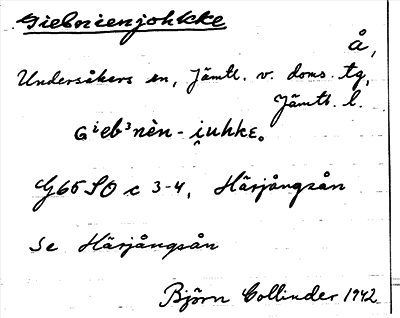 Giebnienjohkke
å,
Undersåkers sn, Jämtl. v. doms. tg,
Jämtl. l.
Gⁱebᵌnèn-i̯uhkE.
G65SO c 3-4, Härjångsån
Se Härjångsån
Björn Collinder 1942